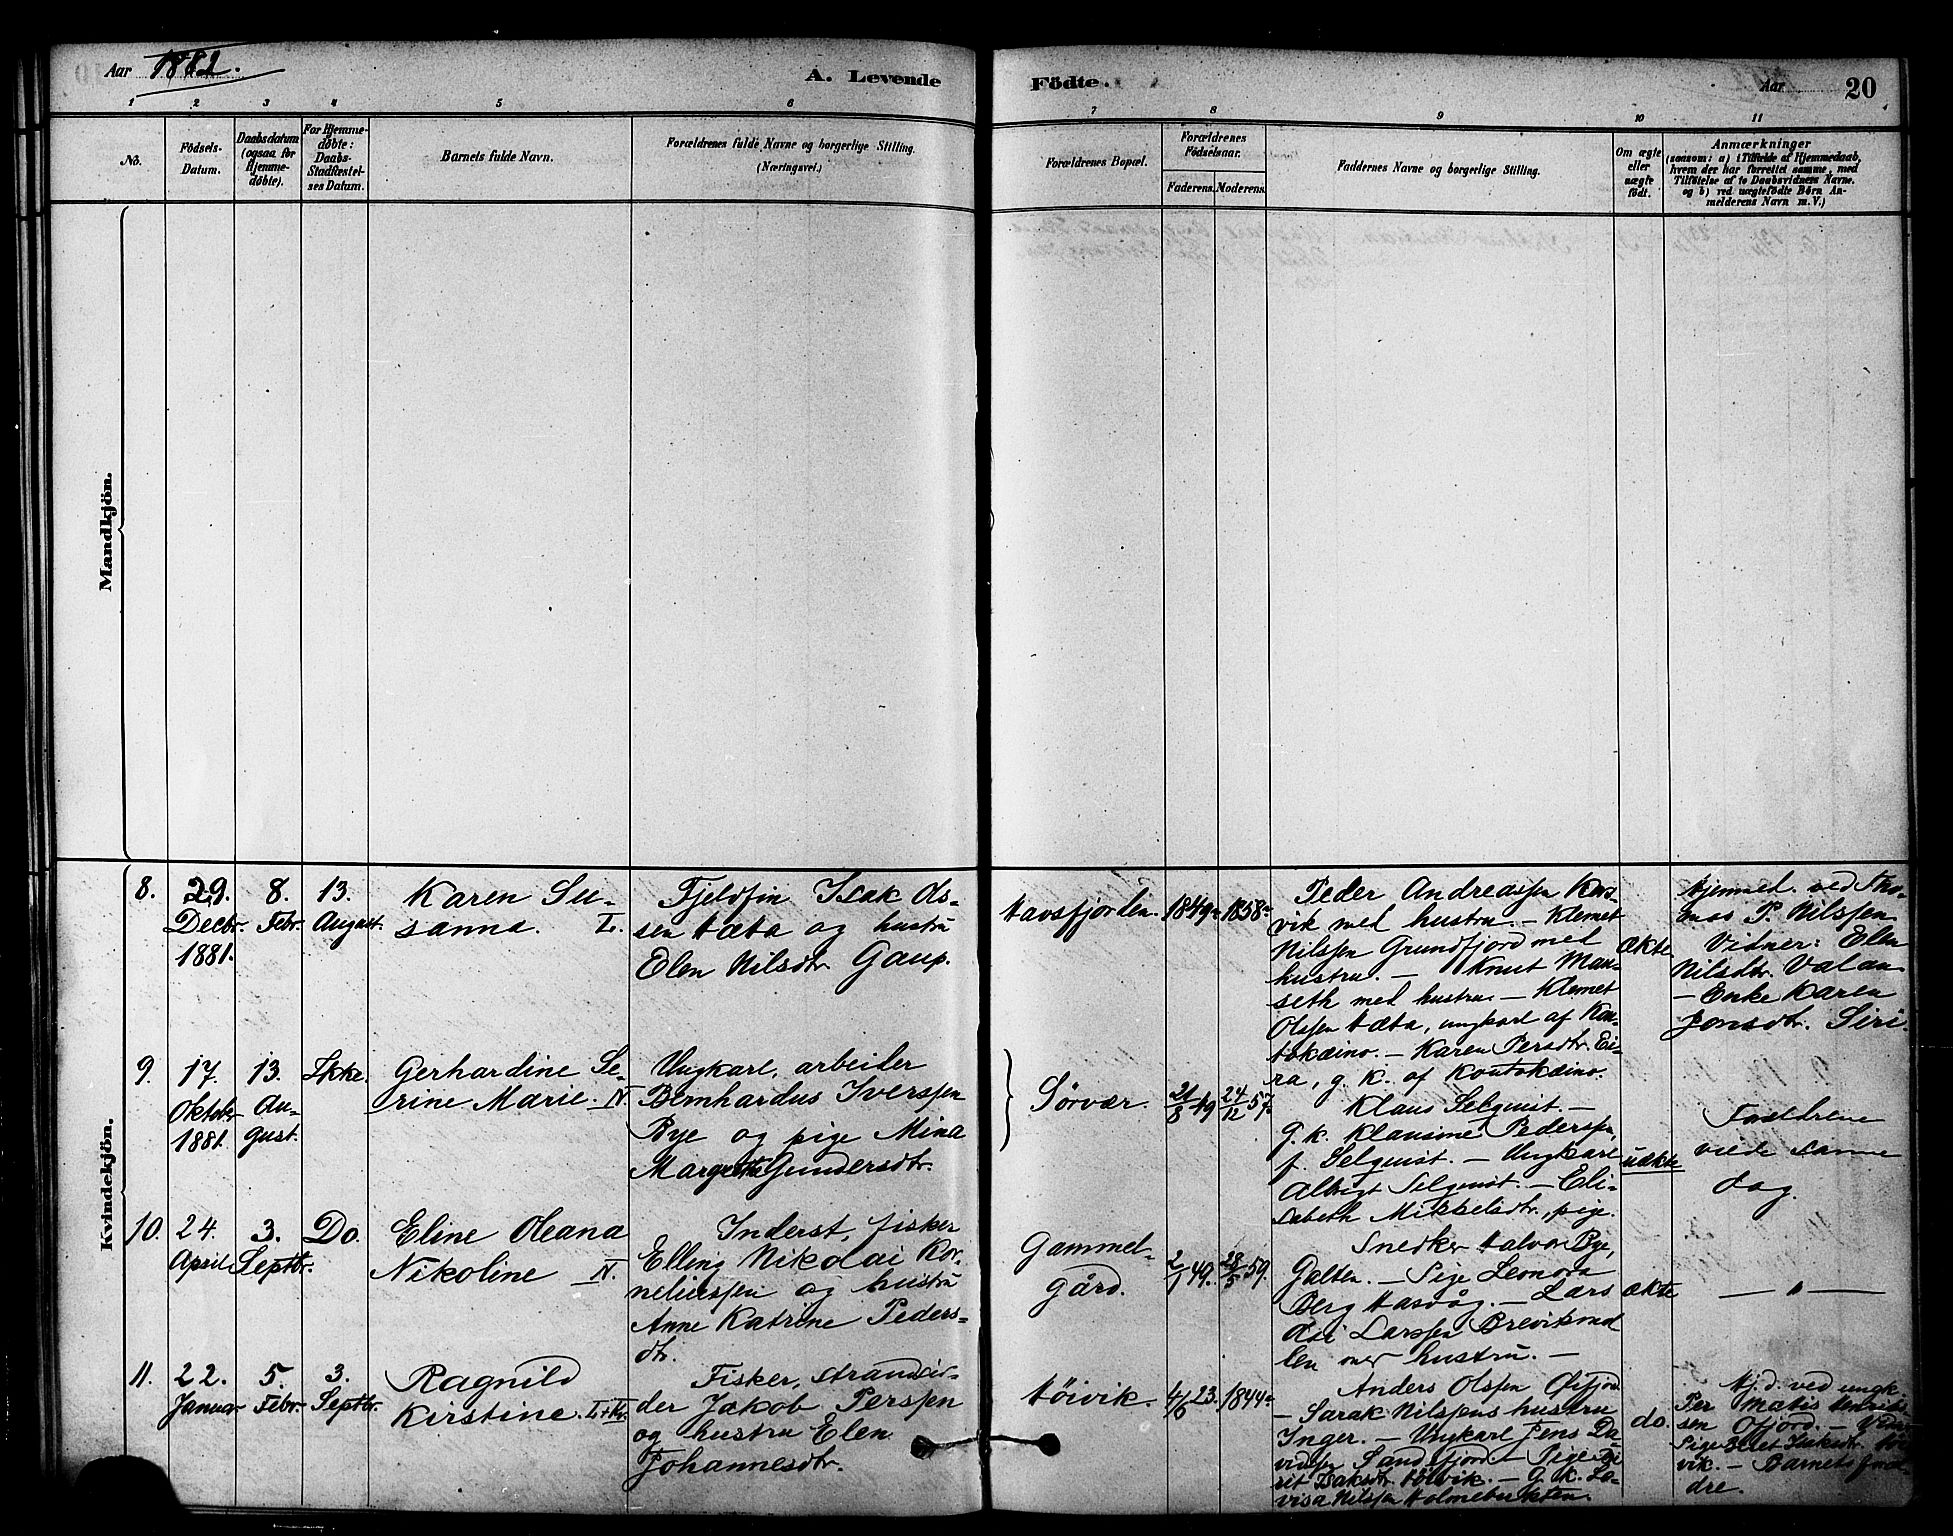 Aar 1882.
A. Levende
Födte.
Aar
20
1 2 3 4 5 6 7 8 9 10 11
No.
Födsels-
Datum.
Daabsdatum
(ogsaa for
Hjemme-
döbte).
For Hjemme-
döbte:
Daabs-
Stadfæstel-
ses Datum.
Barnets fulde Navn.
Forældrenes fulde Navne og borgerlige Stilling.
(Næringsvei.)
Forældrenes Bopæl.
Forældrenes
Födselsaar.
Faderens. Moderens.
Faddernes Navne og borgerlige Stilling.
Om ægte
eller
uægte
födt.
Anmærkninger
(saasom: a) i Tilfælde af Hjemmedaab,
hvem der har forrettet samme, med
Tilföielse af to Daabsvidners Navne,
og b) ved uægtefödte Börn An-
melderens Navn m. V.)
Mandkjön.
Kvindekjön.
8.
29.
Decbr.
1881.
8.
Febr.
13.
August.
Karen Su-
sanna. L.
Fjeldfin Isak Ols-
sen Hæta og hustru
Elen Nilsdtr. Gaup.
Havsfjorden.
1849
1858
Peder Andreassen Kors-
vik med hustru. – Klemet
Nilssen Grundfjord med
hustru. – Knut Mau-
seth med hustru. – Klemet
Olssen Hæta, ungkarl af Kau-
tokæino. – Karen Persdtr. Ei-
ra, g. k. af Koutokæino.
Ækte
Hjemmed. ved Tho-
mas P. Nilssen
Vidner: Elen
Nilsdtr. Valan
– Enke Karen
Jonsdtr. Siri.
9.
17.
Oktobr
1881.
13.
Au-
gust.
Ikke.
Gerhardine Se-
rine Marie. N.
Ungkarl, arbeider
Bernhardus Iverssen
Bye og pige Mina
Margretha Gundersdtr.
Sørvær.
21/8 49
24/12 57.
Klaus Selquist. –
g. k. Klausine Pederssen,
f. Selquist. – Ungkarl
Albrigt Selquist. – Eli-
sabeth Mikkelsdtr., pige.
uækte
Forældrene
viede samme
dag.
10.
24.
April
3.
Septbr.
Do.
Eline Oleana
Nikoline N.
Inderst, fisker
Elling Nikolai Kor-
neliussen og hustru
Anne Katrine Peders-
dtr.
Gammel-
gård.
2/1 49.
28/5 59.
Snedker Halvor Bye,
Galten. – Pige Leonora
Berg Hasvåg. – Lars
Larssen Breviksund
len med hustru. –
ækte
— " —
11.
22.
Januar
5.
Febr.
3.
Septbr.
Ragnild
Kirstine.
Fisker, strandsid-
der Jakob Perssen
og hustru Elen
Johannesdtr.
Høivik.
4/6 23.
1844
Anders Olssen Øifjord
– Sarak Nilssens hustru
Inger. – Ungkarl Jens Da-
vidssen Sandfjord – Pige Bi-
rit Isaksdtr. Høivik. – g. k. Lo-
visa Nilssen Holmebukten.
do.
Hj. d. ved ungk.
Per Matis Henriks-
sen Ofjord. –
Pige Isaksdtr. Høi
vik. – Barnets foræl-
dre.